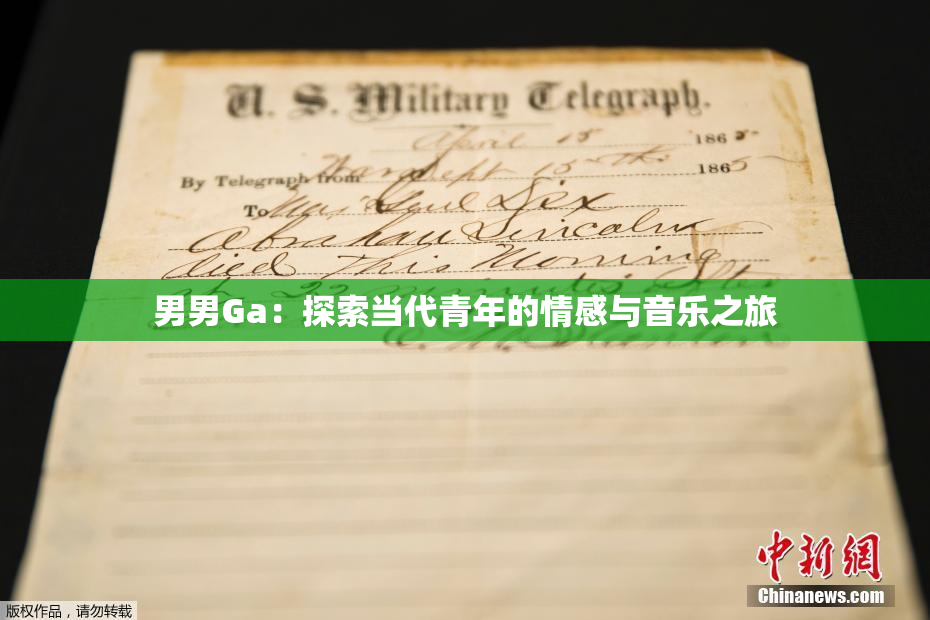 U. S. Military Telegraph.
April 15 1865
By Telegraph from War Dept 15th 1865
To Maj Genl Dix
Abraham Lincoln
died This Morning
at 22 minutes after
男男Ga：探索当代青年的情感与音乐之旅
中新网
Chinanews.com
版权作品，请勿转载